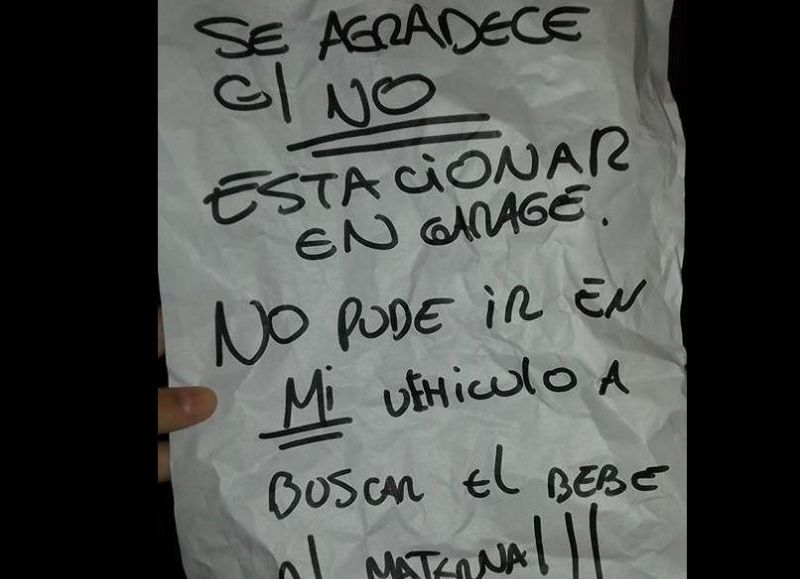 SE AGRADECE
GI NO
ESTACIONAR
EN GARAGE.
NO PUDE iR EN
Mi VEHiCULO A
BUSCAR El BEBE
Al MATERNAl!!